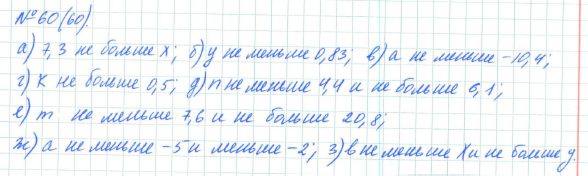 №60(60).
а) 7,3 не больше x; б) y не меньше 0,83; в) a не меньше -10,4;
г) K не больше 0,5; д) n не меньше 4,4 и не больше 6,1;
е) m не меньше 7,6 и не больше 20,8;
ж) a не меньше -5 и меньше -2; з) в не меньше X и не больше y.